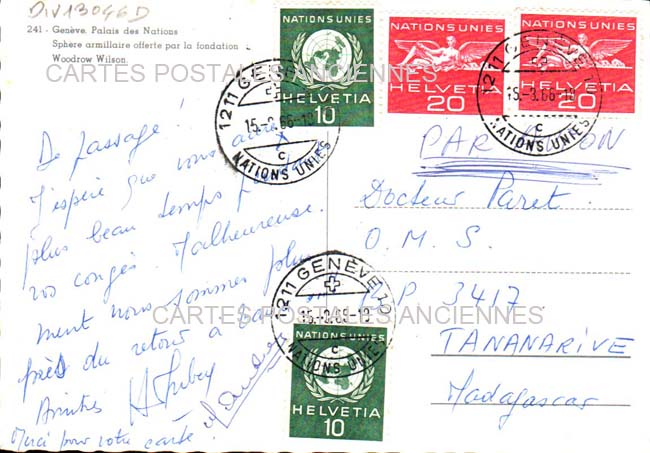 DIV13046D
241 - Genève. Palais des Nations
Sphère armillaire offerte par la fondation
Woodrow Wilson.
CARTES POSTALES ANCIENNES
NATIONS UNIES
HELVETIA
10
NATIONS UNIES
HELVETIA
20
NATIONS UNIES
HELVETIA
20
1211 GENÈVE 10
15.-3.66-18
C
NATIONS UNIES
1211 GENÈVE 10
15.-3.66-18
C
NATIONS UNIES
De passage !
J'espère que vous aurez
plus beau temps
vos congés. Malheureuse
ment nous sommes plus
près du retour à
Amitiés
Merci pour votre carte.
PAR AVION
Docteur Paret
O.M.S.
B.P. 3417
TANANARIVE
Madagascar
1211 GENÈVE 10
C
NATIONS UNIES
CARTES POSTALES ANCIENNES
NATIONS UNIES
HELVETIA
10